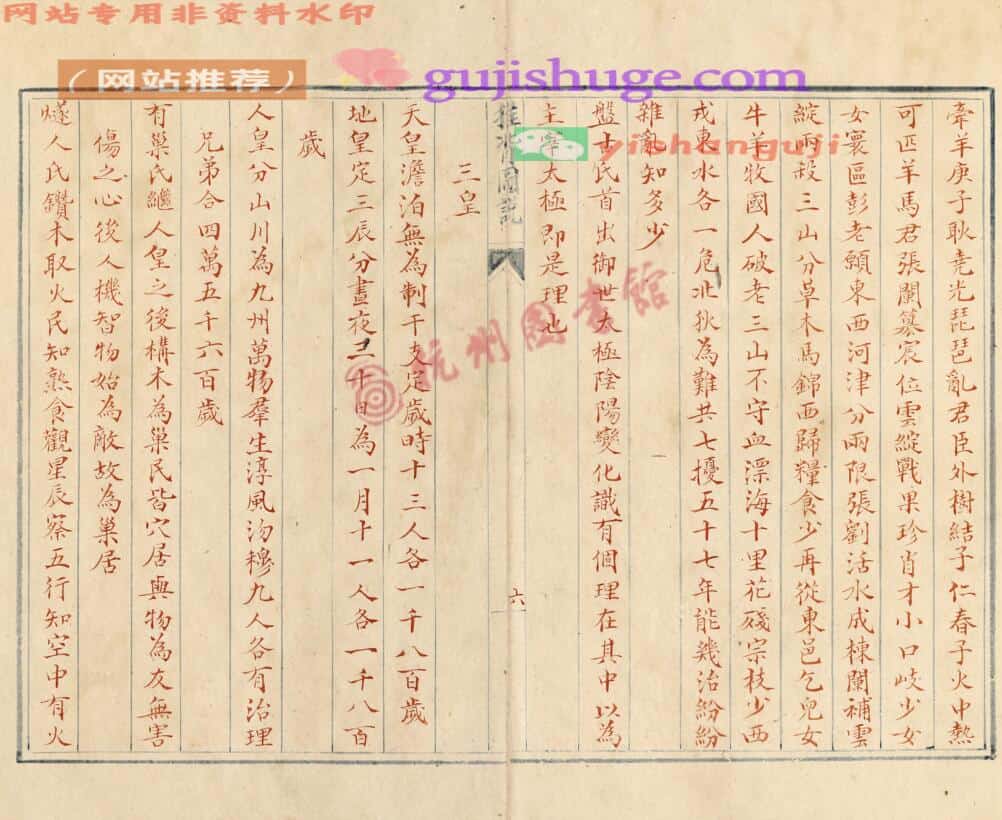 网站专用非资料水印
(网站推荐)
gujishuge.com
yishanguji
牽羊庚子耿堯光琵琶亂君臣外樹結子仁春子火中熱
可匹羊馬君張闌纂宸位雲綻戰果珍肖才小口岐少女
女寰區彭老願東西河津分兩限張劉活水成棟闌補雲
綻雨殺三山分草木馬錦西歸糧食少再從東邑乞兒女
牛羊牧國人破老三山不守血漂海十里花殘宗枝少西
戎東水各一危北狄為難共七擾五十七年能幾治紛紛
雜亂知多少
盤古氏首出御世太極陰陽變化識有個理在其中以為
主宰太極即是理也
推背圖說
六
三皇
天皇澹泊無為制干支定歲時十三人各一千八百歲
地皇定三辰分晝夜三十日為一月十一人各一千八百
歲
人皇分山川為九州萬物羣生淳風沕穆九人各有治理
兄弟合四萬五千六百歲
有巢氏繼人皇之後構木為巢民皆穴居與物為友無害
傷之心後人機智物始為敵故為巢居
燧人氏鑽木取火民知熟食觀星辰察五行知空中有火
杭州图書館